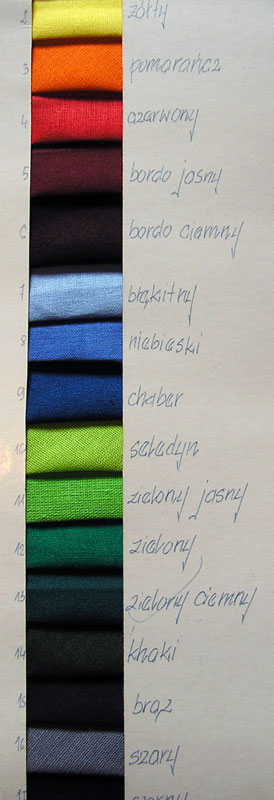 2 żółty
3 pomarańcz
4 czerwony
5 bordo jasny
6 bordo ciemny
7 błękitny
8 niebieski
9 chaber
10 seledyn
11 zielony jasny
12 zielony
13 zielony ciemny
14 khaki
15 brąz
16 szary
17 czarny